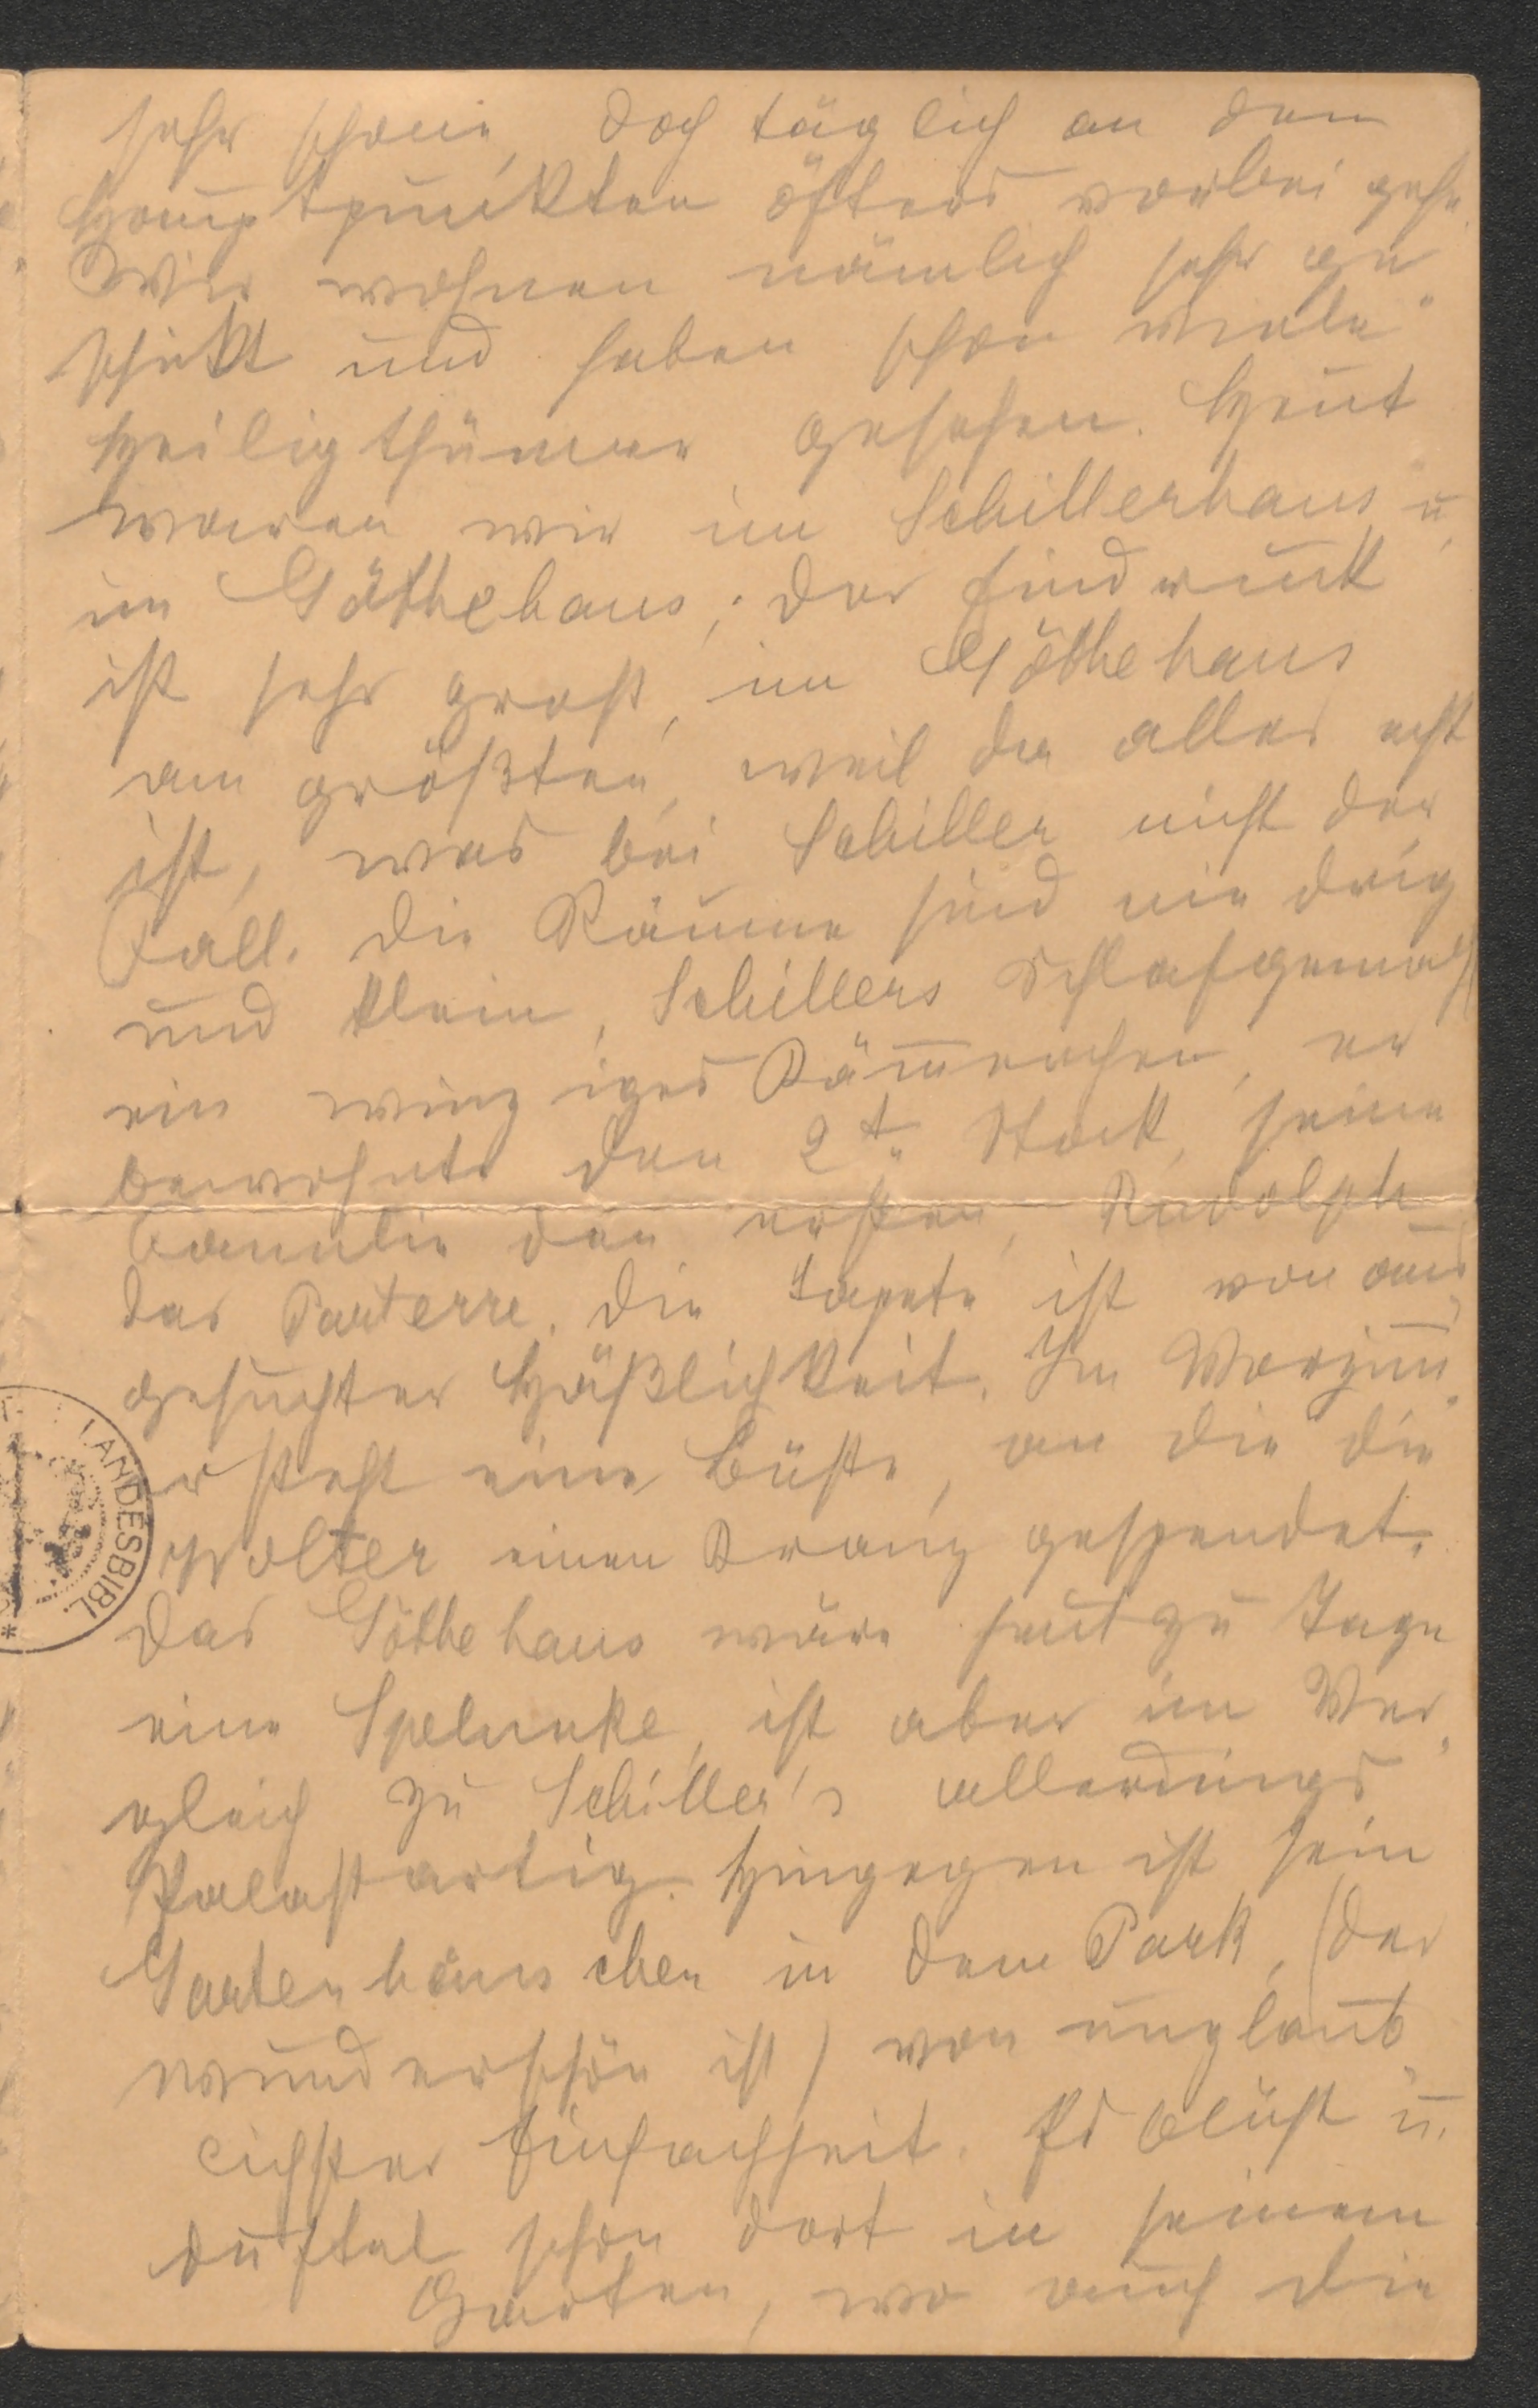 sehr schöne, doch täglich an den
Hauptpunkten öfters vorbei gehe.
Wir wohnen nämlich sehr ge„
schikt und haben schon viele
Heiligthümer gesehen. Heut
waren wir im Schillerhaus u.
im Göthehaus; der Eindruck
ist sehr groß, im Göthehaus
am größten, weil da alles echt
ist, was bei Schiller nicht der
Fall. Die Räume sind niedrig
und klein, Schillers Schlafgemach
ein winziges Kämerchen, er
bewohnte den 2t. Stock, seine
Familie den ersten, Rudolph
das Parterre. Die Tapete ist von aus„
gesuchter Häßlichkeit. Im Vorzim„
er steht eine Büste, an die die
Wolter einen Kranz gespendet.
Das Göthehaus wäre heut zu Tage
eine Spelunke, ist aber im Ver„
gleich zu Schiller's allerdings
Palastartig. Hingegen ist sein
Gartenhäuschen in dem Park, (der
wunderschön ist) von unglaub„
lichster Einfachheit. Es blüht u.
duftet schon dort in seinem
Garten, wo auch die
LANDESBIBL.